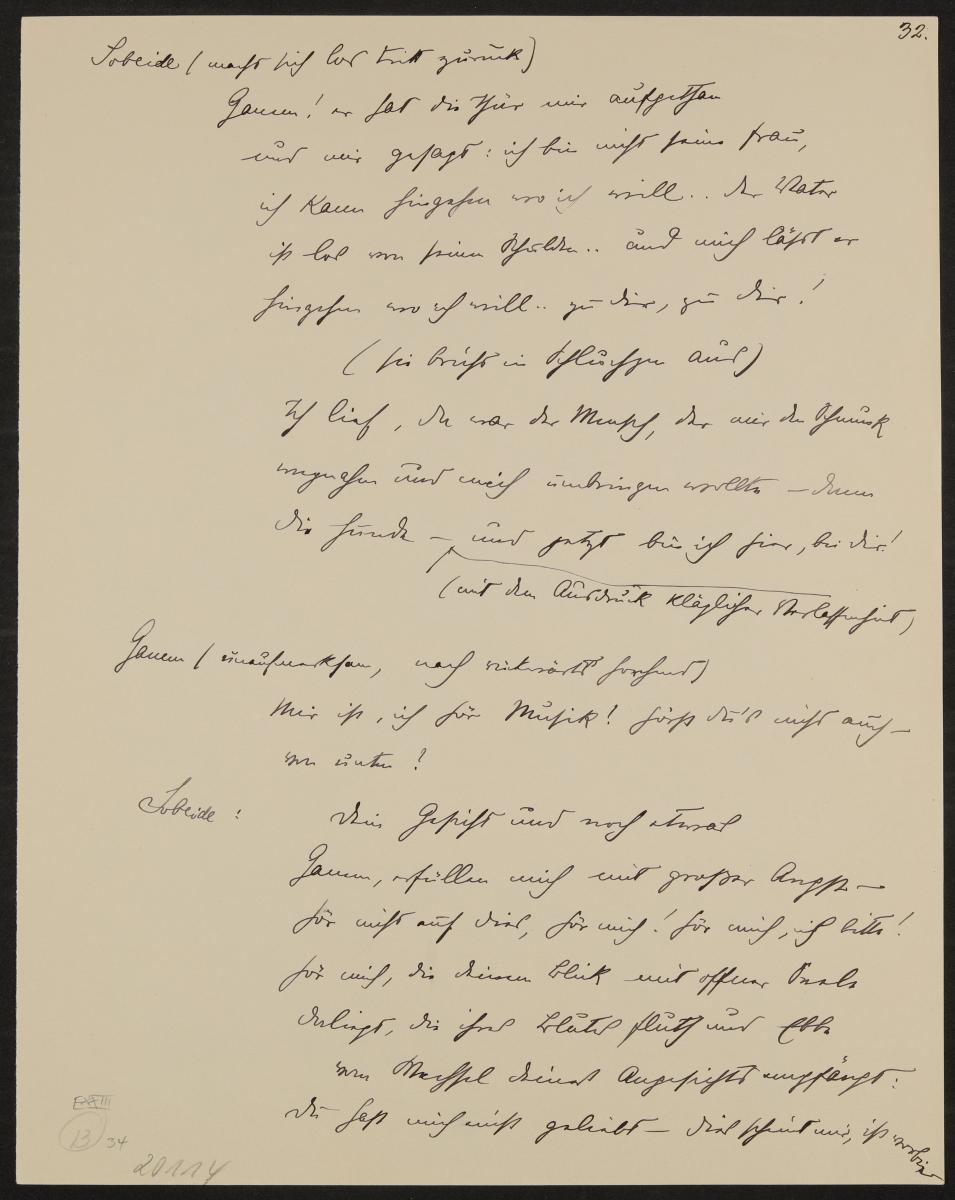 32.
Sobeide (macht sich los tritt zurück)
Ganem! er hat die Thür mir aufgethan
und mir gesagt: ich bin nicht seine Frau,
ich kann hingehen wo ich will.. der Vater
ist los von seinen Schulden.. und mich läßt er
hingehen wo ich will.. zu dir, zu dir!
(sie bricht in Schluchzen aus)
Ich lief, da war der Mensch, der mir den Schmuck
wegnahm und mich umbringen wollte – dann
die Hunde – und jetzt bin ich hier, bei dir!
(mit dem Ausdruck kläglicher Verlassenheit)
Ganem (unaufmerksam, nach rückwärts horchend)
Mir ist, ich hör Musik! hörst du's nicht auch –
von unten!
Sobeide: Dein Gesicht und noch etwas
Ganem, erfüllen mich mit großer Angst –
hör nicht auf dies, hör mich! hör mich, ich bitte!
hör mich, die deinem Blick mit offner Seele
daliegt, die ihres Blutes Fluth und Ebbe
vom Wechsel deines Angesichts empfängt:
du hast mich einst geliebt – dies scheint mir, ist vorbei
XXIII
13 34
20114